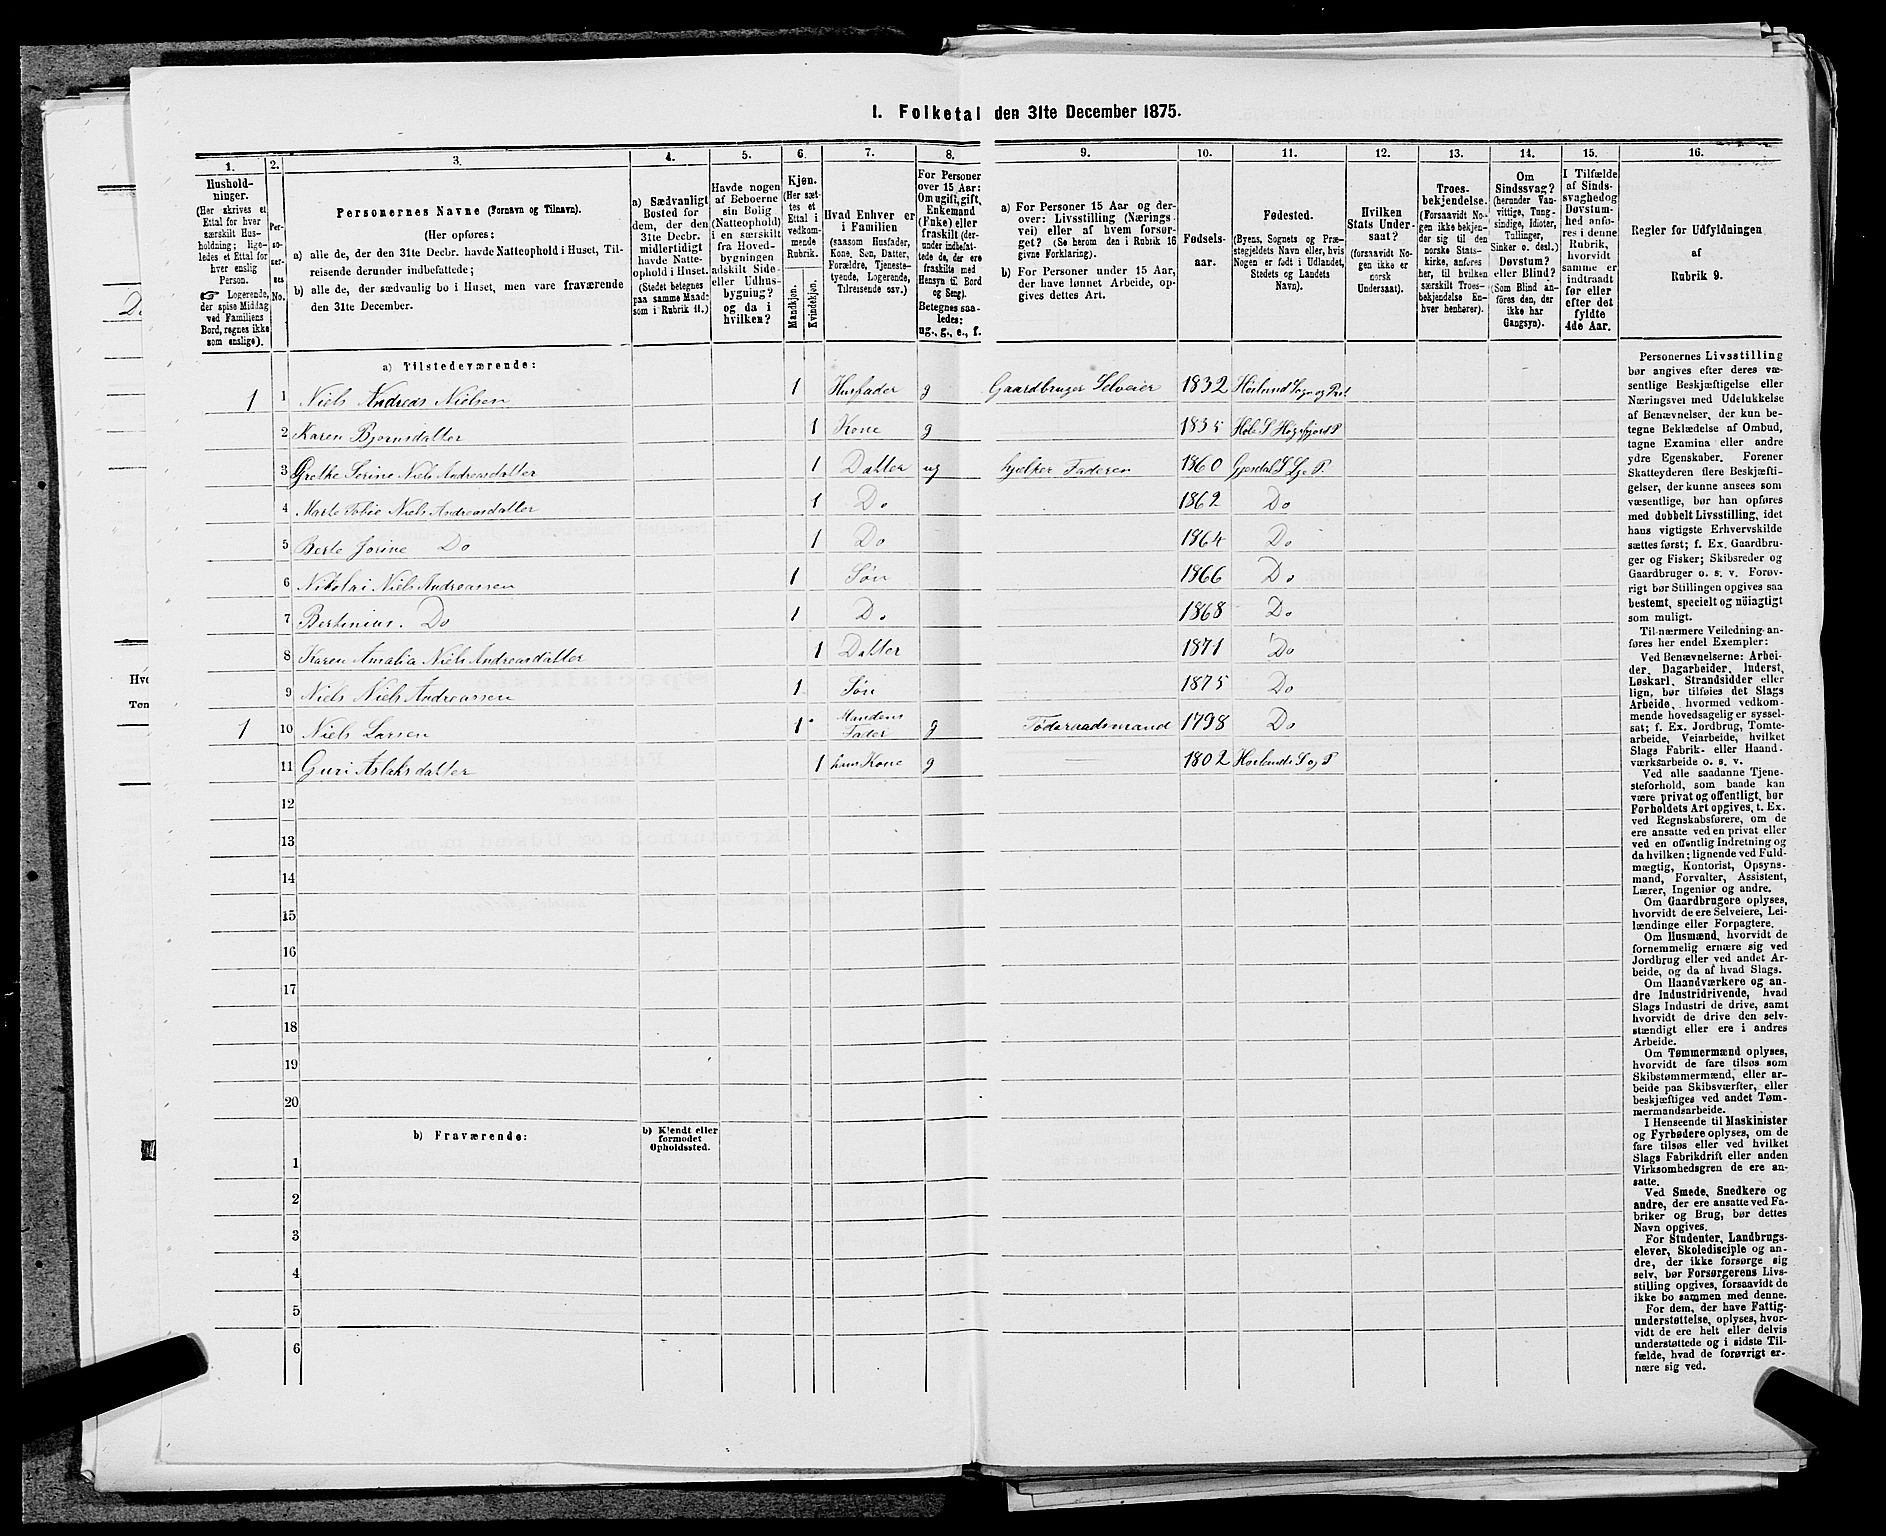 I. Folketal den 31te December 1875.
1. 2. 3. 4. 5. 6. 7. 8. 9. 10. 11. 12. 13. 14. 15. 16.
Hushold-
ninger.
(Her skrives et
Ettal for hver
særskilt Hus-
holdning; lige-
ledes et Ettal for
hver enslig
Person.
☞ Logerende,
der spise Middag
ved Familiens
Bord, regnes ikke
som enslige).
Per-
so-
ner-
nes
No.
Personernes Navne (Fornavn og Tilnavn).
(Her opføres:
a) alle de, der den 31te Decbr. havde Natteophold i Huset, Til-
reisende derunder indbefattede;
b) alle de, der sædvanlig bo i Huset, men vare fraværende
den 31te December.
a) Sædvanligt
Bosted for
dem, der den
31te Decbr.
midlertidigt
havde Natte-
ophold i Huset.
(Stedet betegnes
paa samme Maade
som i Rubrik 11.)
Havde nogen
af Beboerne
sin Bolig
(Natteophold)
i en særskilt
fra Hoved-
bygningen
adskilt Side-
eller Udhus-
bygning?
og da i
hvilken?
Kjøn.
(Her sæt-
tes et
Ettal i
vedkom-
mende
Rubrik.
Mandkjøn.
Kvindekjøn.
Hvad Enhver er
i Familien
(saasom Husfader,
Kone, Søn, Datter,
Forældre, Tjeneste-
tyende, Logerende,
Tilreisende osv.)
For Personer
over 15 Aar:
Om ugift, gift,
Enkemand
(Enke) eller
fraskilt (der-
under indbefat-
tede de, der ere
fraskilte med
Hensyn til Bord
og Seng).
Betegnes saa-
ledes:
ug., g., e., f.
a) For Personer 15 Aar og der-
over: Livsstilling (Nærings-
vei) eller af hvem forsør-
get? (Se herom den i Rubrik 16
givne Forklaring).
b) For Personer under 15 Aar,
der have lønnet Arbeide, op-
gives dettes Art.
Fødsels-
aar.
Fødested.
(Byens, Sognets og Præ-
stegjeldets Navn eller, hvis
Nogen er født i Udlandet,
Stedets og Landets
Navn).
Hvilken
Stats Under-
saat?
(forsaavidt No-
gen ikke er
norsk
Undersaat).
Troes-
bekjendelse.
(Forsaavidt No-
gen ikke bekjen-
der sig til den
norske Stats-
kirke, anføres
her, til hvilken
særskilt Troes-
bekjendelse En-
hver henhører).
Om
Sindssvag?
(herunder Van-
vittige, Tung-
sindige, Idioter,
Tullinger,
Sinker o. desl.)
Døvstum?
eller Blind?
(Som Blind an-
føres den, der
ikke har
Gangsyn).
I Tilfælde
af Sinds-
svaghed og
Døvstum-
hed anfø-
res i denne
Rubrik,
hvorvidt
samme er
indtraadt
før eller
efter det
fyldte
4de Aar.
Regler for Udfyldningen
af
Rubrik 9.
a) Tilstedeværende:
1 1 Niels Andreas Nielsen 1 Husfader g Gaardbruger Selveier 1832
2 Karen Bjørnsdatter 1 Kone g 1835
3 Grethe Serine Niels Andreasdatter 1 Datter ug hjelper Faderen 1860 Gjesdal S. Lye P.
4 Niels Andreasdatter 1 Do 1862 Do
5 Berte Jorine Do 1 Do 1864 Do
6 Nikolai Niels Andreassen 1 Søn 1866 Do
7 Bertinius. Do 1 Do 1868 Do
8 Karen Amalia Niels Andreasdatter 1 Datter 1871 Do
9 Niels Niels Andreassen 1 Søn 1875 Do
1 10 Niels Larsen 1 Mandens Fader g Føderaadsmand 1798 Do
11 Guri Aslaksdatter 1 hans Kone g 1802
12
13
14
15
16
17
18
19
20
b) Fraværende:
b) Kjendt eller
formodet
Opholdssted.
1
2
3
4
5
6
Personernes Livsstilling
bør angives efter deres væ-
sentlige Beskjæftigelse eller
Næringsvei med Udelukkelse
af Benævnelser, der kun be-
tegne Beklædelse af Ombud,
tagne Examina eller andre
ydre Egenskaber. Forener
Skatteyderen flere Beskjæfti-
gelser, der kunne ansees som
væsentlige, bør han opføres
med dobbelt Livsstilling, idet
hans vigtigste Erhvervskilde
sættes først; f. Ex. Gaardbru-
ger og Fisker; Skibsreder og
Gaardbruger o. s. v. Forøv-
rigt bør Stillingen opgives saa
bestemt, specielt og nöiagtigt
som muligt.
Til nærmere Veiledning an-
føres her endel Exempler:
Ved Benævnelserne: Arbei-
der, Dagarbeider, Inderst,
Løskarl, Strandsidder eller
lign, bør tilføies det Slags
Arbeide, hvormed vedkom-
mende hovedsagelig er syssel-
sat; f. Ex. Jordbrug, Tomte-
arbeide, Veiarbeide, hvilket
Slags Fabrik- eller Haand-
værksarbeide o. s. v.
Ved alle saadanne Tjene-
steforhold, som baade kan
være privat og offentligt, bør
Forholdets Art opgives, t. Ex.
ved Regnskabsførere, om de
ere ansatte ved en privat eller
ved en offentlig Indretning og
da hvilken; lignende ved Fuld-
mægtig, Kontorist, Opsyns-
mand, Forvalter, Assistent,
Lærer, Ingeniør og andre.
Om Gaardbrugere oplyses,
hvorvidt de ere Selveiere, Lei-
lændinge eller Forpagtere.
Om Husmænd, hvorvidt de
fornemmelig ernære sig ved
Jordbrug eller ved andet Ar-
beide, og da af hvad Slags.
Om Haandværkere og an-
dre Industridrivende, hvad
Slags Industri de drive, samt
hvorvidt de drive den selv-
stændigt eller ere i andres
Arbeide.
Om Tømmermænd oplyses,
hvorvidt de fare tilsøs som
Skibstømmermænd, eller ar-
beide paa Skibsværfter, eller
beskjæftiges ved andet Tøm-
mermandsarbeide.
I Henseende til Maskinister
og Fyrbødere oplyses, om de
fare tilsøs eller ved hvilket
Slags Fabrikdrift eller anden
Virksomhedsgren de ere an-
satte.
Ved Smede, Snedkere og
andre, der ere ansatte ved Fa-
briker og Brug, bør dettes
Navn opgives.
For Studenter, Landbrugs-
elever, Skoledisciple og an-
dre, der ikke forsørge sig
selv, bør Forsørgerens Livs-
stilling opgives, forsaavidt de
ikke bo sammen med denne.
For dem, der have Fattig-
understøttelse, oplyses, hvor-
vidt de ere helt eller delvis
understøttede og i sidste Til-
fælde, hvad de forøvrigt er-
nære sig ved.